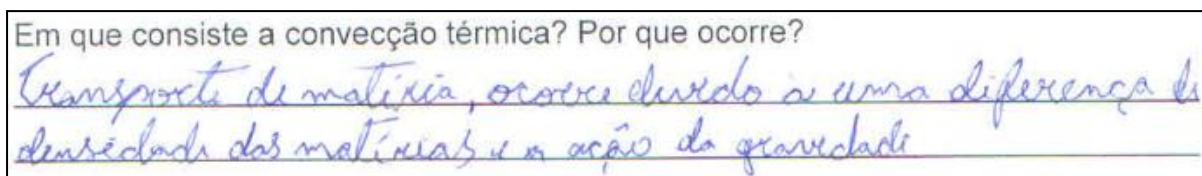 Em que consiste a convecção térmica? Por que ocorre?
Transporte de matéria, ocorre devido a uma diferença de
densidade das matérias e a ação da gravidade